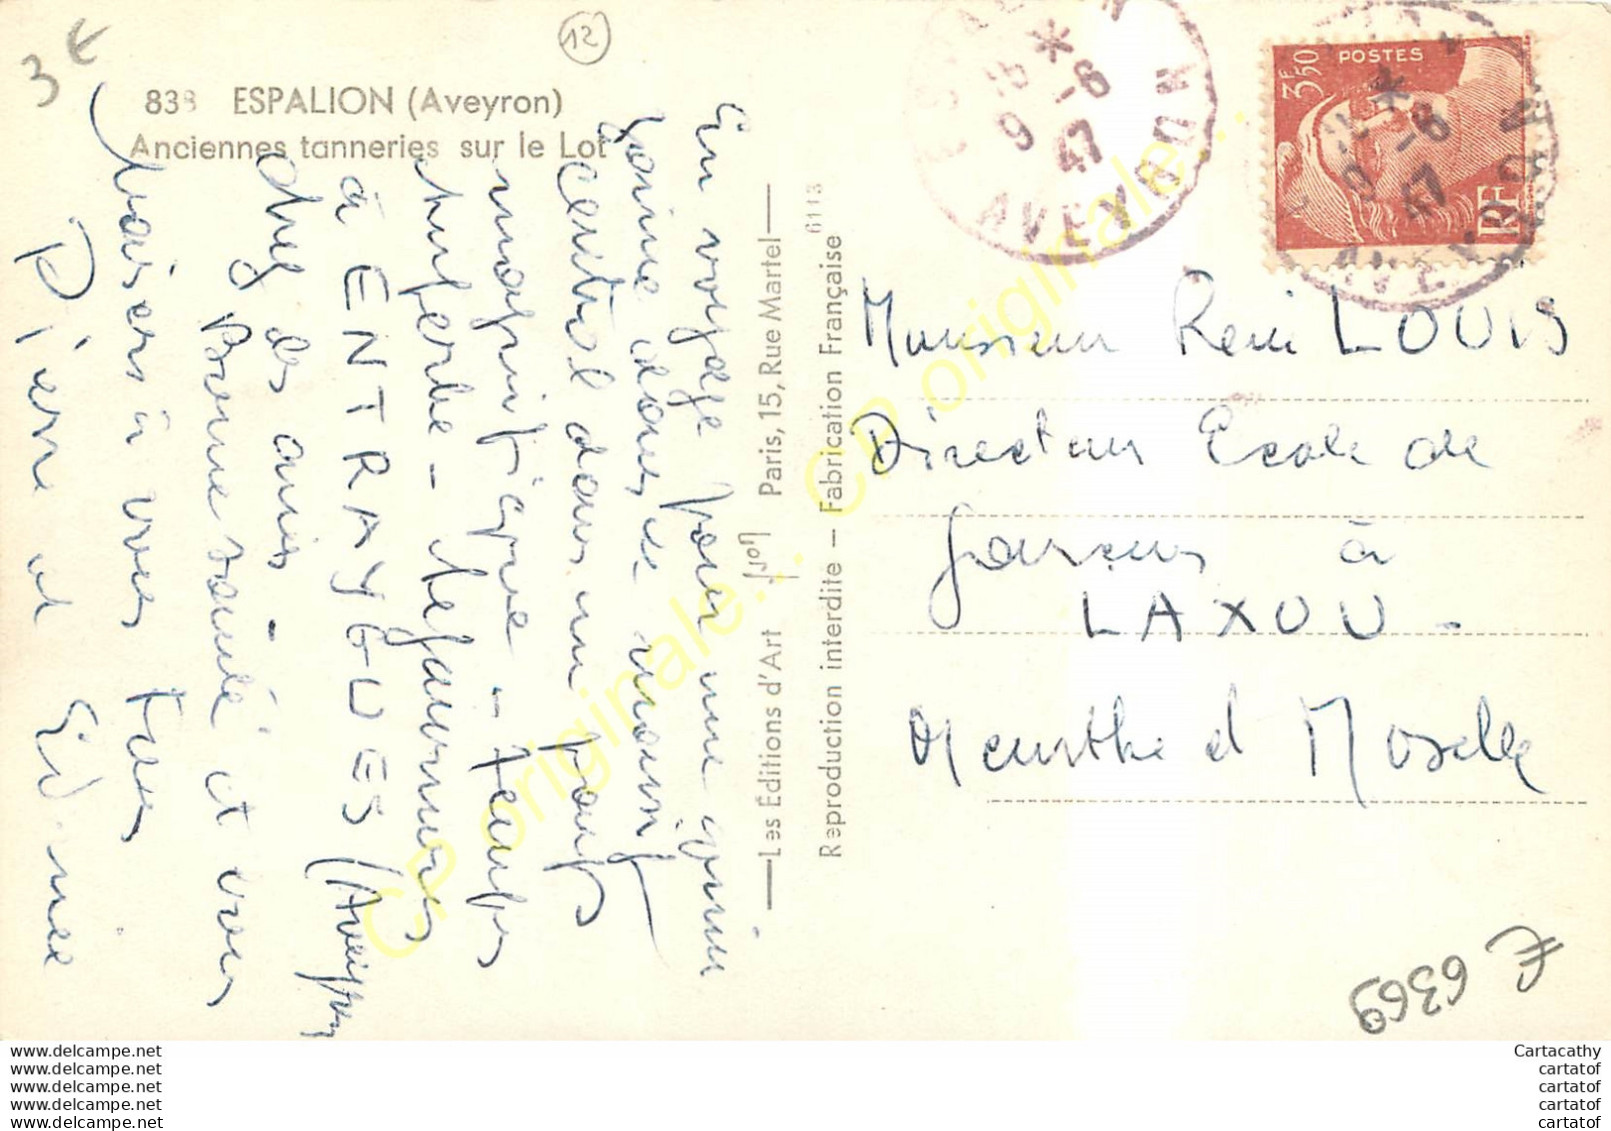 3 €
12
838 ESPALION (Aveyron)
Anciennes tanneries sur le Lot
En voyage pour une
dans le
central dans un pays
magnifique - temps
superbe -
à ENTRAYGUES (Aveyron)
chez des amis -
Bonne santé et vous
baisers à vous tous
Pierre et
Les Editions d'Art "YVON" Paris, 15, Rue Martel
Reproduction interdite - Fabrication Française 6113
ESPALION
16 *
9 -6
47
AVEYRON
POSTES
3F50
RF
Monsieur René LOUIS
Directeur Ecole de
garçons à
LAXOU -
Meurthe et Moselle
E 6369
CP originale... CP originale...
www.delcampe.net
www.delcampe.net
www.delcampe.net
www.delcampe.net
www.delcampe.net
Cartacathy
cartatof
cartatof
cartatof
cartatof